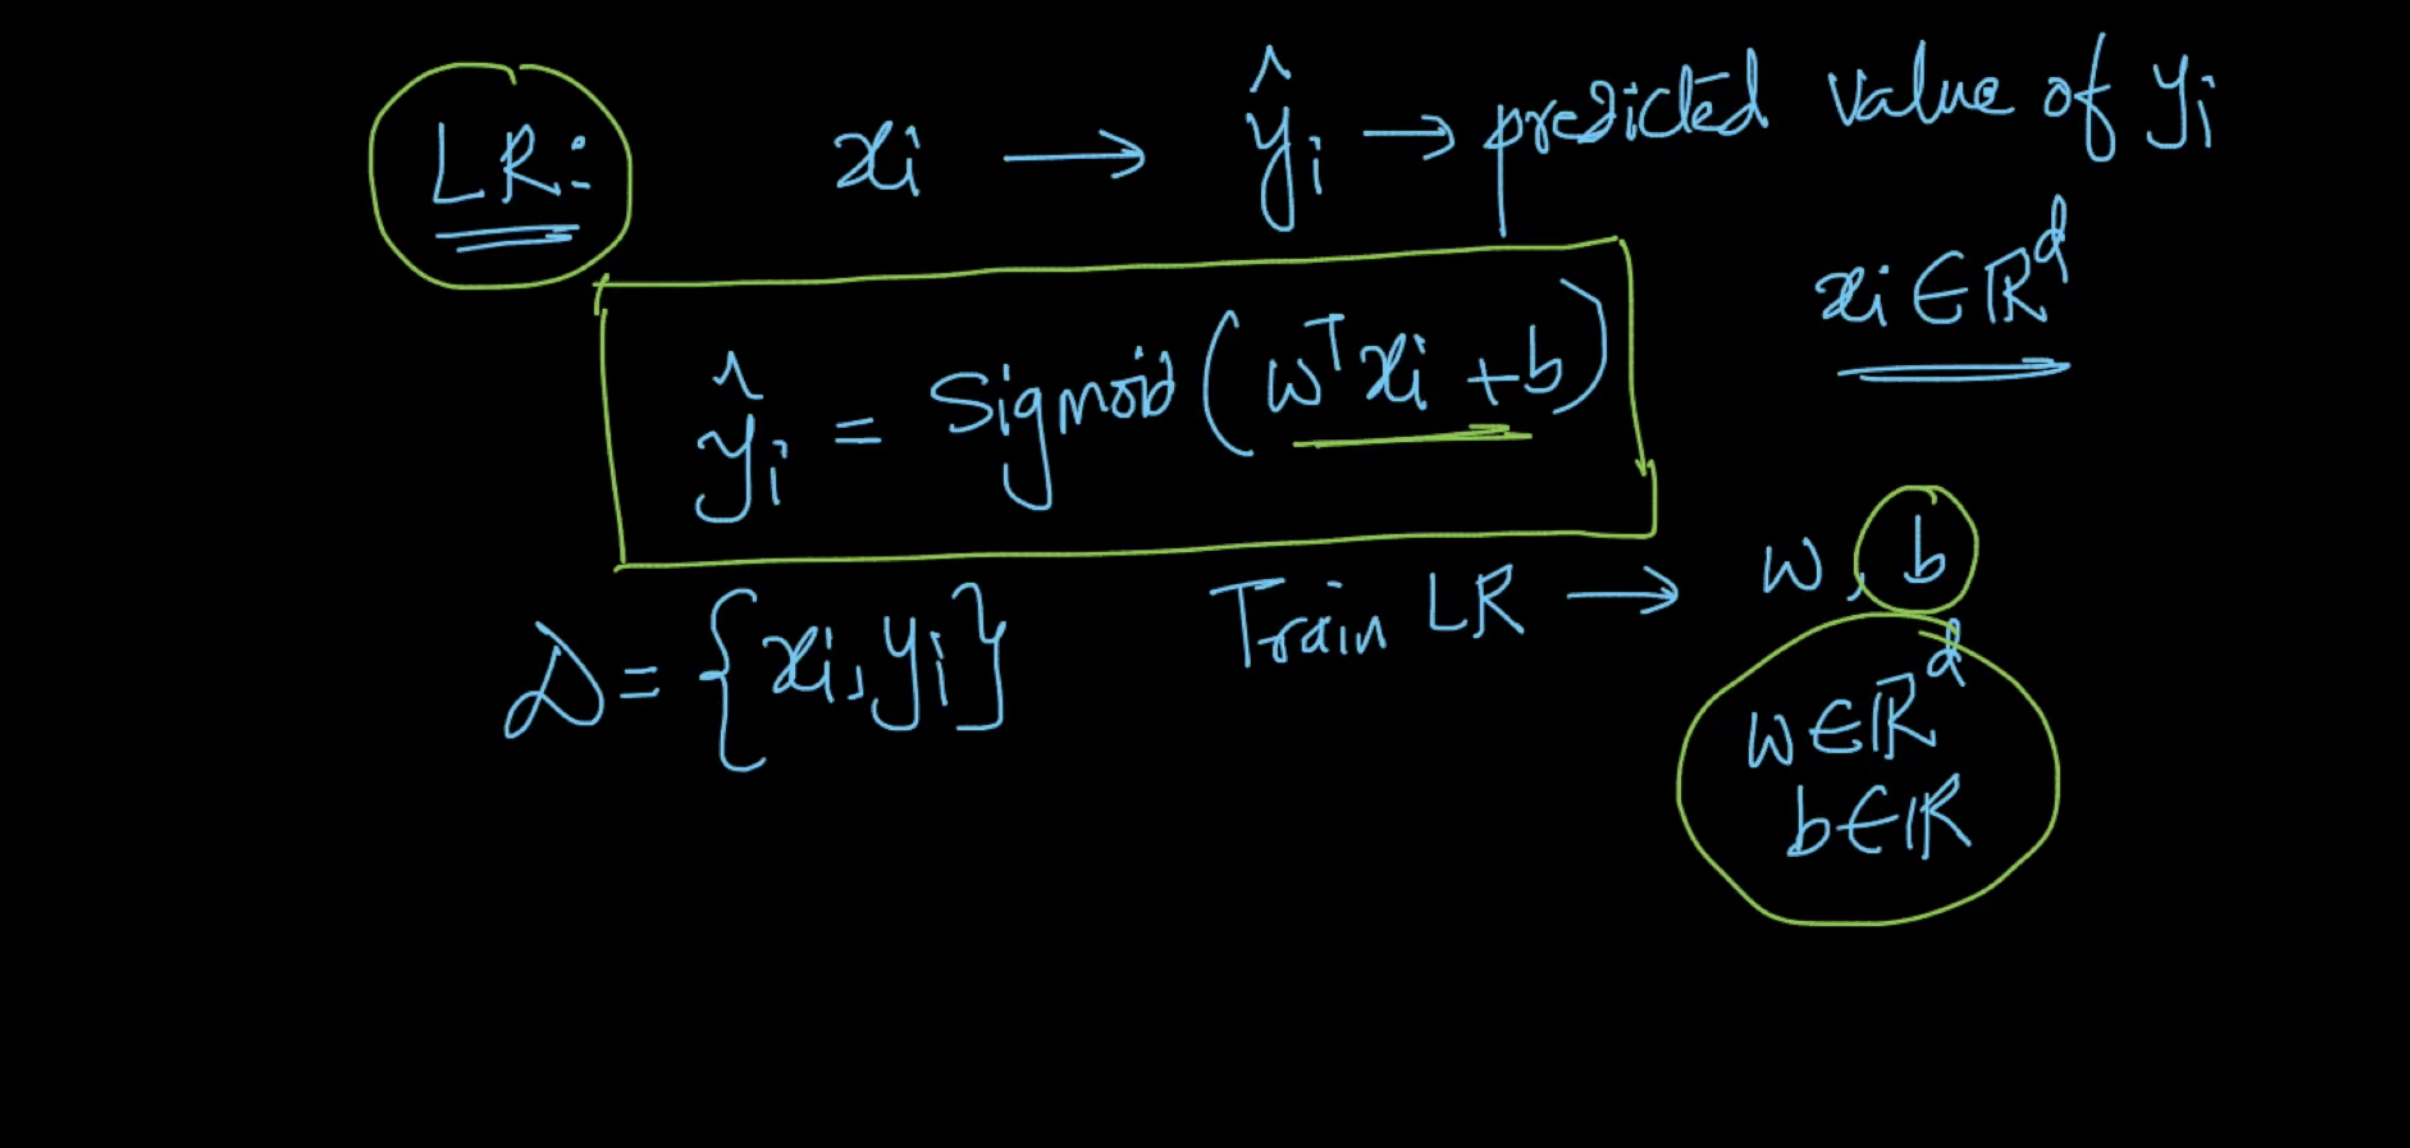 LR: xi → ŷi → predicted value of yi
xi ∈ ℝᵈ
ŷi = Sigmoid(wᵀxi + b)
D = {xi, yi} Train LR → w, b
w ∈ ℝᵈ
b ∈ ℝ